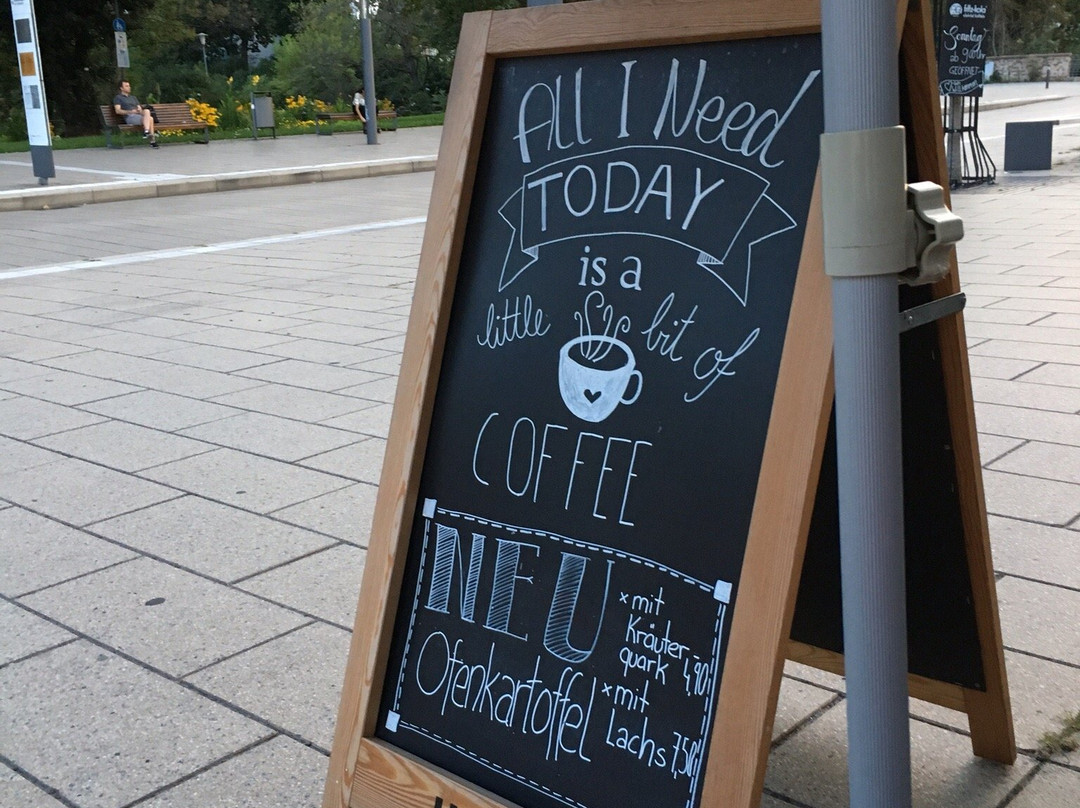 All I Need
TODAY
is a
little bit of
COFFEE
NEU
Ofenkartoffel
x mit
Kräuter
quark 4,90
x mit
Lachs 7,50
fritz-kola
Sonntag
ab 9 Uhr
GEÖFFNET